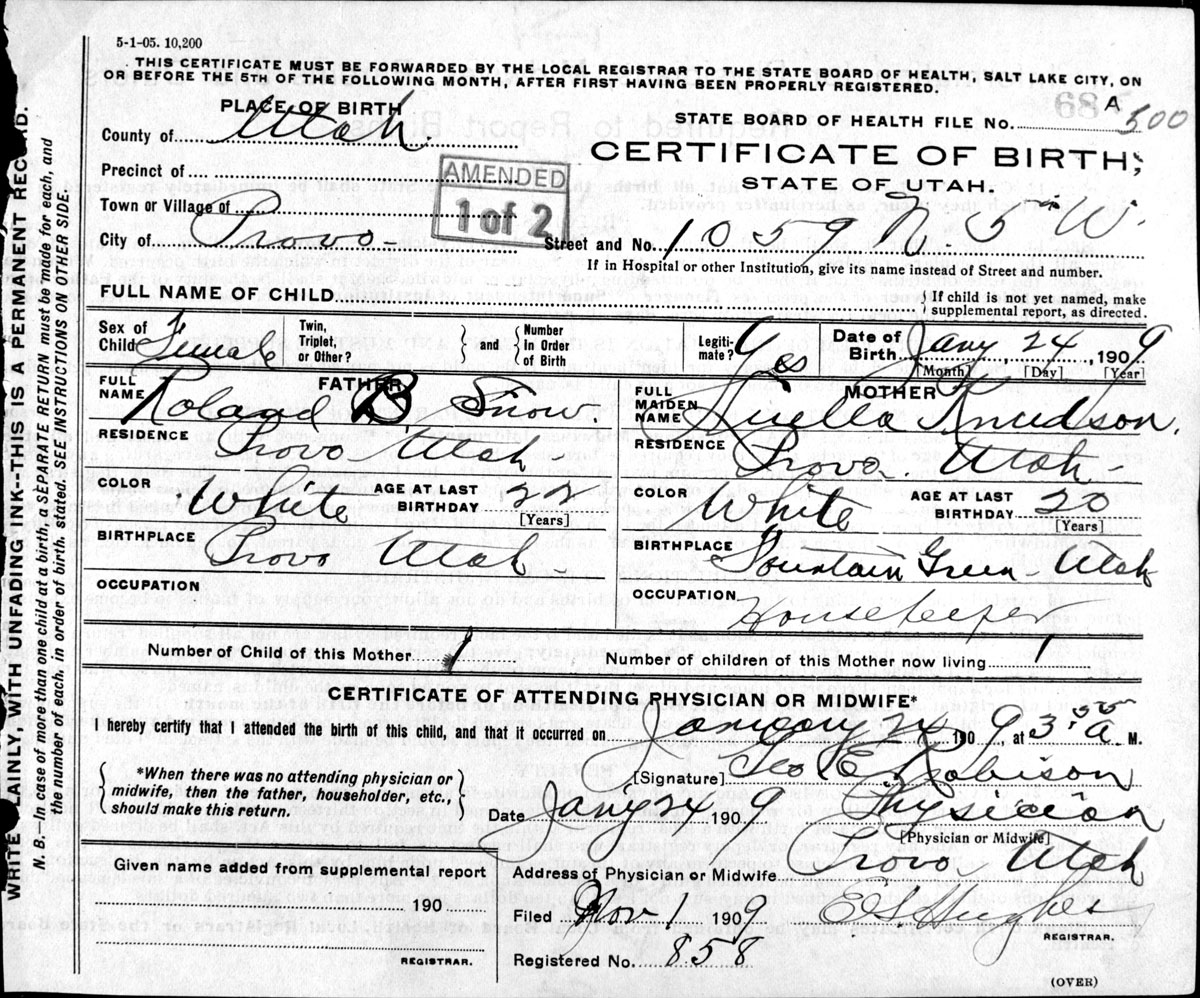 5-1-05. 10,200
THIS CERTIFICATE MUST BE FORWARDED BY THE LOCAL REGISTRAR TO THE STATE BOARD OF HEALTH, SALT LAKE CITY, ON
OR BEFORE THE 5TH OF THE FOLLOWING MONTH, AFTER FIRST HAVING BEEN PROPERLY REGISTERED.
PLACE OF BIRTH
A
STATE BOARD OF HEALTH FILE No. 500
County of Utah.
CERTIFICATE OF BIRTH,
Precinct of
AMENDED
STATE OF UTAH.
Town or Village of
1 of 2
City of Provo
Street and No. 1059 N. 5 W.
If in Hospital or other Institution, give its name instead of Street and number.
FULL NAME OF CHILD
If child is not yet named, make
supplemental report, as directed.
Sex of Child Female
Twin, Triplet, or Other?
and
Number in Order of Birth
Legitimate? Yes
Date of Birth Jany, 24, 1909
[Month] [Day] [Year]
FATHER
FULL NAME Roland B. Snow.
RESIDENCE Provo Utah
COLOR White
AGE AT LAST BIRTHDAY 22
[Years]
BIRTHPLACE Provo Utah
OCCUPATION
MOTHER
FULL MAIDEN NAME Knudson.
RESIDENCE Provo. Utah
COLOR White
AGE AT LAST BIRTHDAY 20
[Years]
BIRTHPLACE Fountain Green Utah
OCCUPATION Housekeeper
Number of Child of this Mother 1
Number of children of this Mother now living 1
CERTIFICATE OF ATTENDING PHYSICIAN OR MIDWIFE*
I hereby certify that I attended the birth of this child, and that it occurred on January 24 1909, at 3.55 a M.
*When there was no attending physician or
midwife, then the father, householder, etc.,
should make this return.
[Signature] Geo E. Robison
Date Jany 24 1909 Physician
[Physician or Midwife]
Given name added from supplemental report
190
REGISTRAR.
Address of Physician or Midwife Provo Utah
Filed Nov 1 1909 E S Hughes
REGISTRAR.
Registered No. 858
(OVER)
WRITE PLAINLY, WITH UNFADING INK--THIS IS A PERMANENT RECORD.
N. B.—In case of more than one child at a birth, a SEPARATE RETURN must be made for each, and
the number of each, in order of birth, stated. SEE INSTRUCTIONS ON OTHER SIDE.